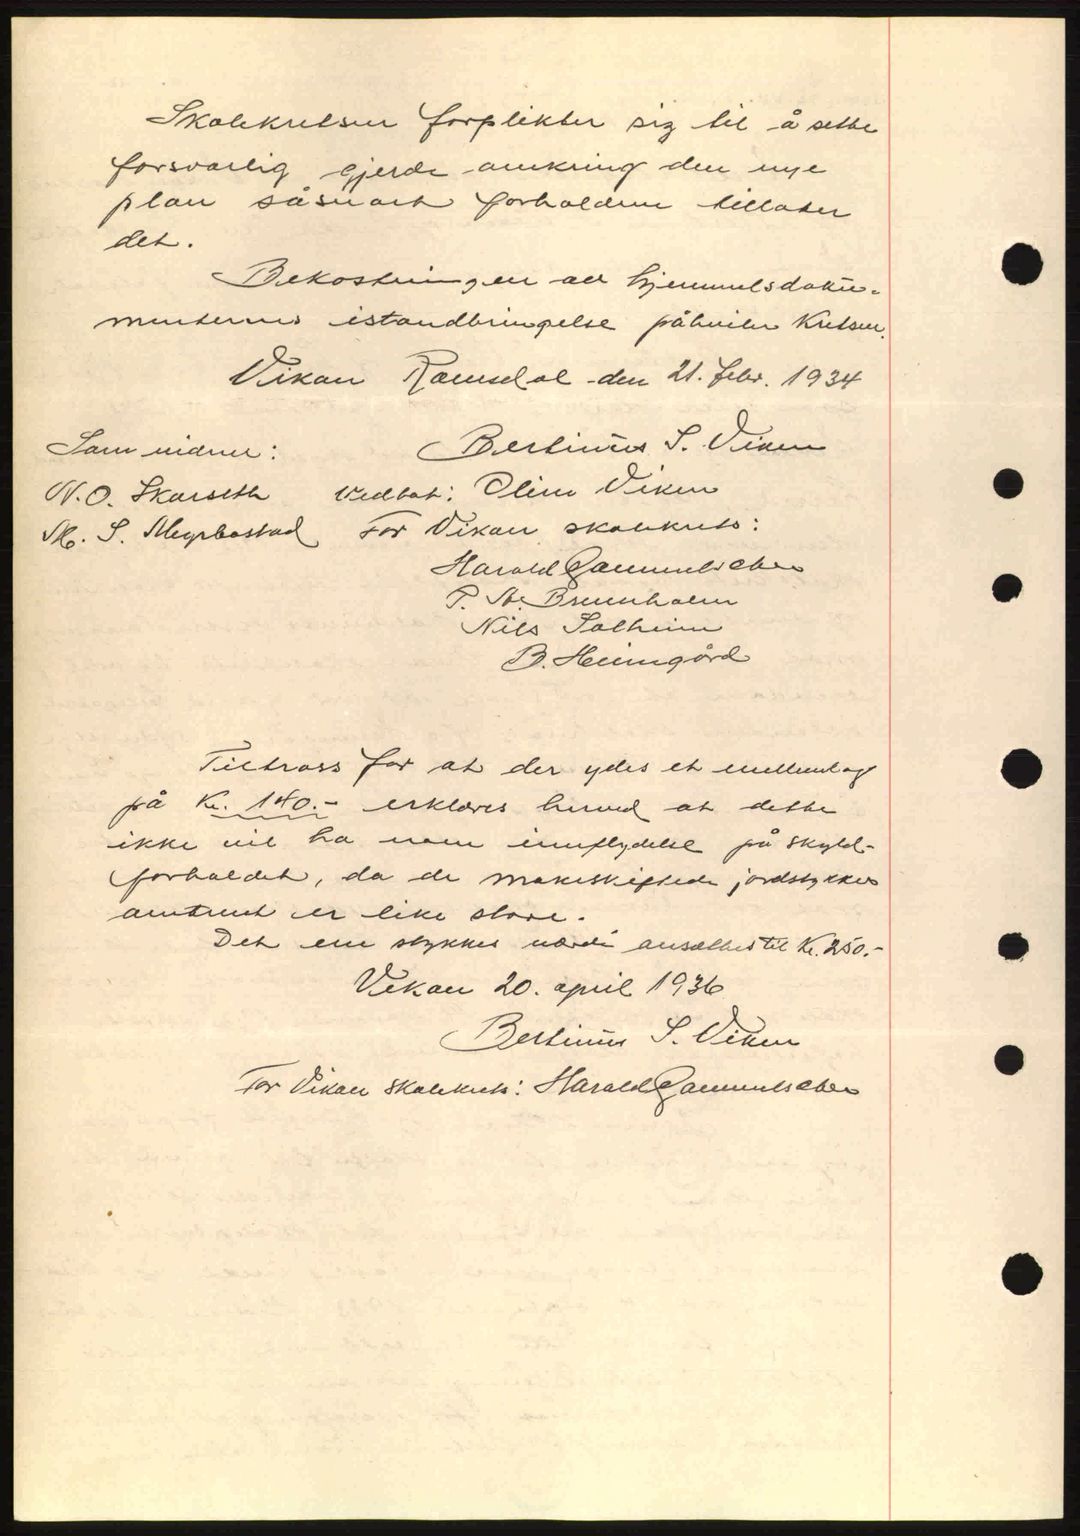 Skolekretsen forplikter sig til å sette
forsvarlig gjerde omkring den nye
plan såsnart forholdene tillater
det.
Bekostningen av hjemmelsdoku-
menternes istandbringelse påhviler Kretsen.
Vikan Romsdal den 21. febr. 1934
Som vidner:
Bertinus S. Viken
N.O. Skarseth
Vedtat: Oline Viken
S. Myrbostad
For Vikan skolekrets:
Harald Gammelsæter
P. Brunholm
Nils Solheim
B. Heimgård
Tiltross for at der ydes et mellemlag
på Kr. 140.- erklæres herved at dette
ikke vil ha noen innflydelse på skyld-
forholdet, da de makeskiftede jordstykker
omtrent er like store.
Det ene stykkes verdi ansættes til Kr. 250.-
Vikan 20. april 1936
Bertinus S. Viken
For Vikan skolekrets: Harald Gammelsæter